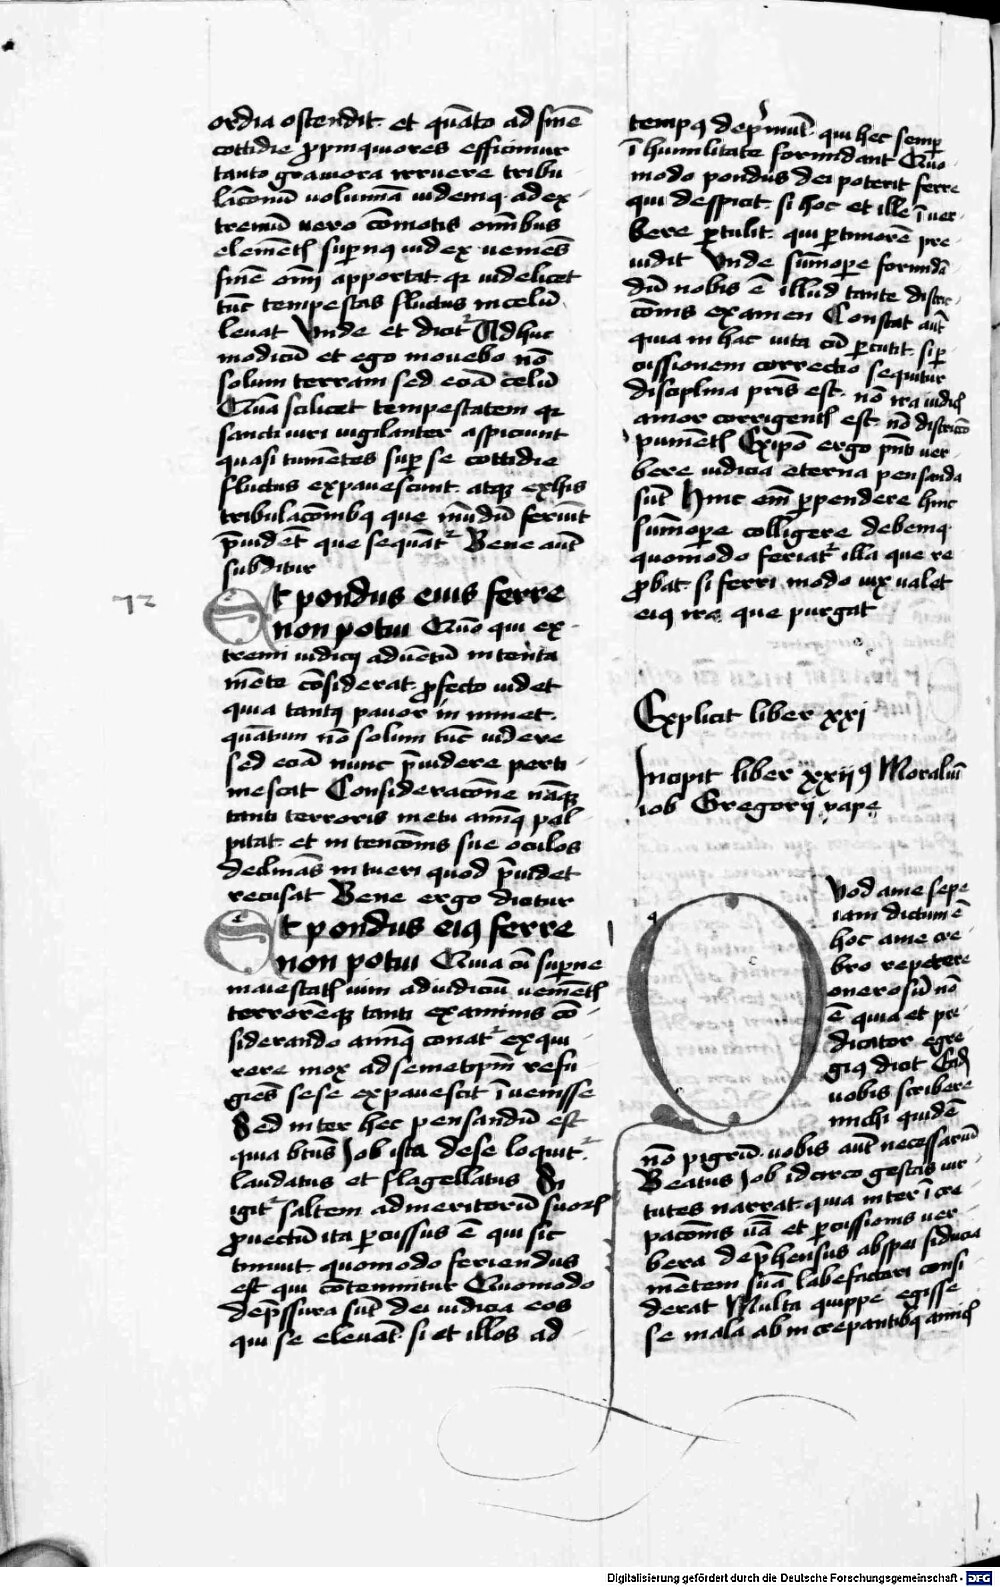 ordia ostendit. et quāto ad finē
cottidie ꝓpinquiores efficimur
tanto grauiora irruere tribu-
lacōnū uolumina uidemꝰ ad ex-
tremū uero cōmotis om̄ibus
elemētis supernꝰ iudex ueniēs
finē om̄i apportat. qꝛ uidelicet
tūc tempestas fluctus in celū
leuat Vnde et dicitᷣ Adhuc
modicū et ego mouebo nō
solum terram sed eciā celū
Quā scilicet tempestatem qꝛ
sancti uiri uigilanter aspiciunt
quasi tumētes sup se cottidie
fluctus expauescunt. atqꝫ ex his
tribulacōnibꝰ que mūdū feriūt
p̄uidēt que sequātᷣ Bene aūt
subditur
72
Et pondus eius ferre
non potui Quō qui ex-
tremi iudicij aduentū intenta
mēte cōsiderat. ꝓfecto uidet
quia tantꝰ pauor in minet.
quātum nō solum tūc uidere
sed eciā nunc p̄uidere perti-
mescat Consideracōne nāqꝫ
tanti terroris metu animꝰ pal-
pitat. et intencōnis sue oculos
declinās intueri quod p̄uidet
recusat Bene ergo dicitur
Et pondus eiꝰ ferre
non potui Quia cū superne
maiestatis uim ad iudiciū ueniētis
terrorēqꝫ tanti examinis cō-
siderando animꝰ conatᷣ exqui-
rere mox ad semetip̄m refu-
giēs sese expauescit īuenisse
Sed inter hec pensandū est
quia btūs Job ista de se loquitᷣ
laudatus et flagellatus Si
igitᷣ saltem ad meritorū suorꝝ
ꝓuectū ita ꝑcussus ē qui sic
timuit. quomodo feriendus
est qui cōtemnitur Quomodo
dep̄ssura sūt dei iudicia eos
qui se eleuāt. si et illos ad
tempꝰ dep̄mūt. qui hec semꝑ
ī humilitate formidant Quo-
modo pondus dei poterit ferre
qui despicit. si hoc et ille ī uer-
bere ꝑtulit. qui ꝑ timorē pre-
uidit Vnde sūmoꝑe formidā-
dū nobis ē illud tante distric-
cōnis examen Constat aūt
quia in hac uita cū ꝑcutit. si ꝑ-
cussionem correctio sequitur
disciplina pris̄ est. nō ira iudicis
amor corrigentis est. nō districtō
punientis Ex ip̄o ergo p̄nti uer-
bere iudicia eterna pensanda
sūt Hinc em̄ ꝑpendere hinc
sūmoꝑe colligere debemꝰ
quomodo feriatᷣ illa que re-
ꝓbat. si ferri modo uix ualet
eiꝰ ira que purgat
Explicit liber xxj
Incipit liber xxijꝰ Moraliū
iob Gregorij pape
Quod a me sepe
iam dictum ē
hoc a me cre-
bro repetere
onerosū nō
ē quia et pre-
dicator egre-
giꝰ dicit Eadē
uobis scribere
michi quidē
nō pigrū. uobis aūt necessariū
Beatus Job idcirco gestas uir-
tutes narrat. quia inter īcre-
pacōnis uā et ꝑcussionis uer-
bera dep̄hensus ab spei fiducia
mētem suā labefactari consi-
derat Multa quippe egisse
se mala ab increpantibꝰ amicis
Digitalisierung gefördert durch die Deutsche Forschungsgemeinschaft - DFG